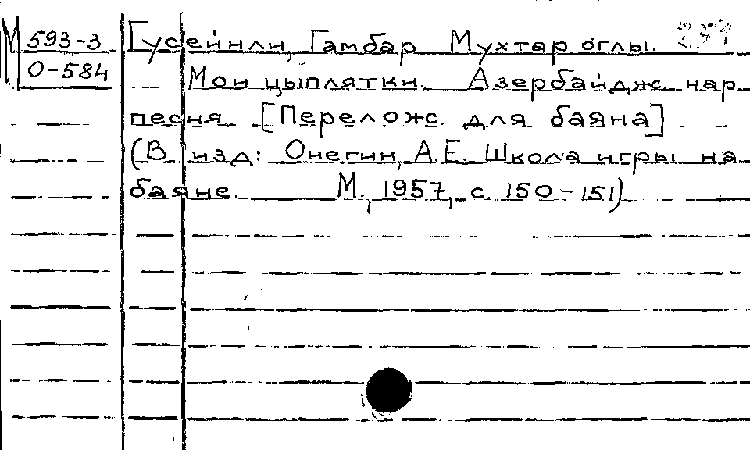 М 593-3
О-584
Гусейнли, Гамбар Мухтар оглы.
Мои цыплятки. Азербайджс. нар.
песня. [Перелож. для баяна]
(В изд: Онегин, А.Е. Школа игры на
баяне. М., 1957, с. 150-151)